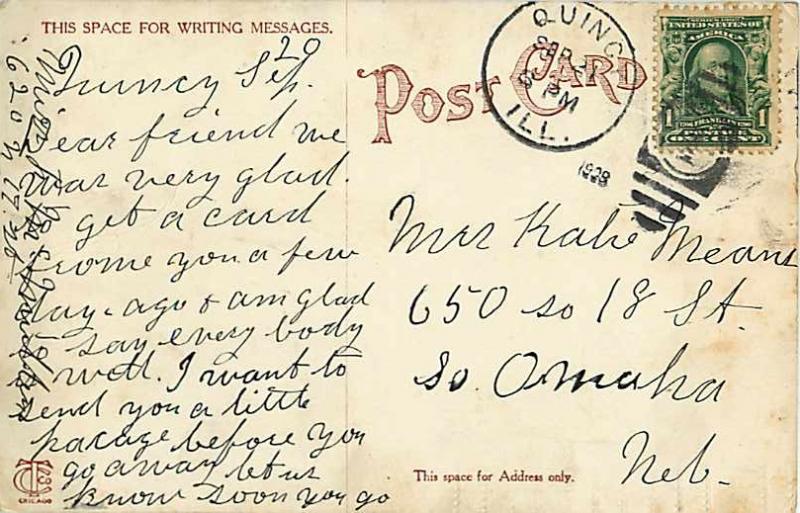 THIS SPACE FOR WRITING MESSAGES.
Quincy Sep. 20
Dear friend we
war very glad.
get a card
frome you a few
day. ago & am glad
say every body
well. I want to
send you a little
pacage before you
go away let us
know soon you go
Miss
620 N 17.
CHICAGO
POST CARD
QUINCY
SEP 21
8 PM
ILL.
1908
SERIES 1902
UNITED STATES OF
AMERICA
1 1
FRANKLIN
POSTAGE
ONE CENT
Mrs Katie Means
650 so 18 St.
So. Omaha
Neb.
This space for Address only.